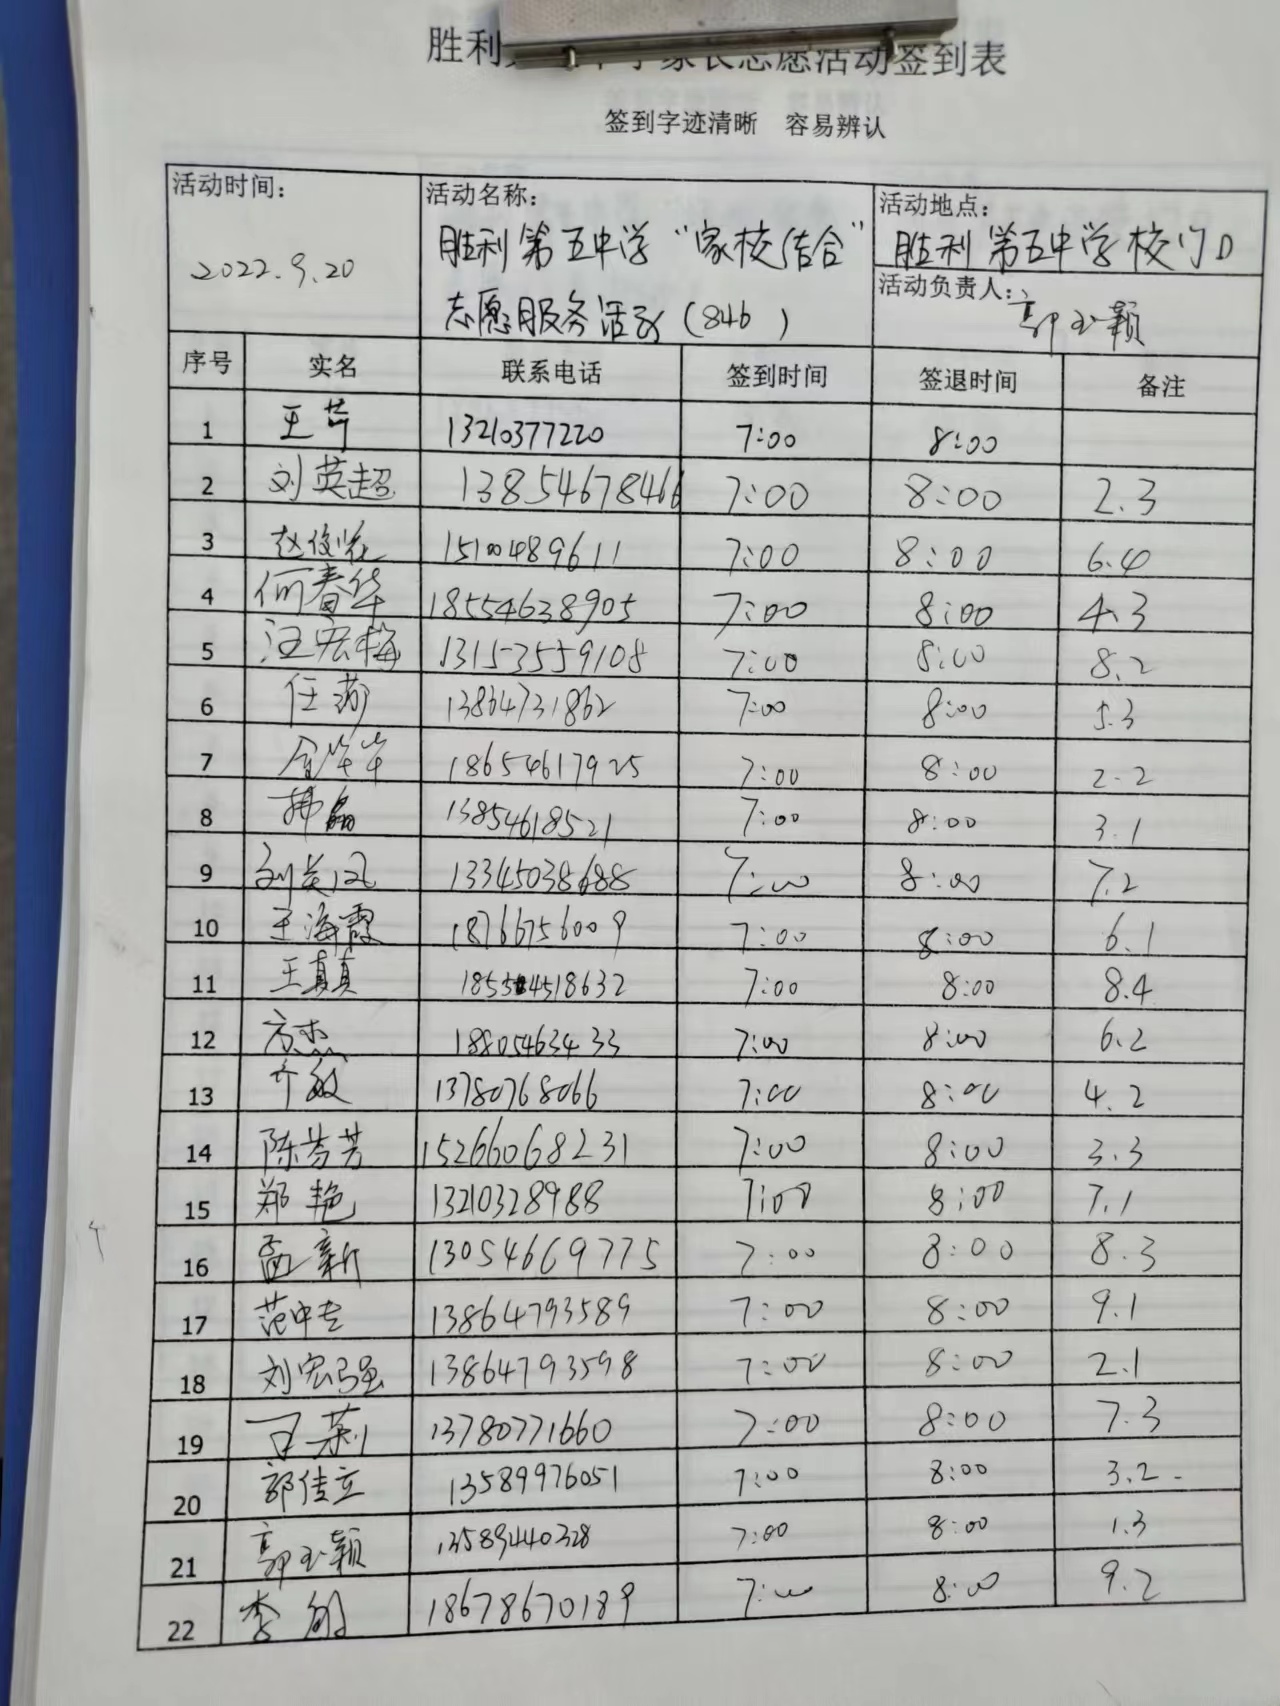 胜利 家长志愿活动签到表
签到字迹清晰 容易辨认
活动时间:
2022.9.20
活动名称:
胜利第五中学“家校结合”
志愿服务活动(846)
活动地点:
胜利第五中学校门口
活动负责人:
郭玉颖
序号 实名 联系电话 签到时间 签退时间 备注
1 王芹 13210377220 7:00 8:00
2 刘英超 13854678466 7:00 8:00 2.3
3 15100489611 7:00 8:00 6.4
4 何春华 18554638905 7:00 8:00 4.3
5 汪宏梅 13153559108 7:00 8:00 8.2
6 任 13864731862 7:00 8:00 5.3
7 18654617925 7:00 8:00 2.2
8 13854618521 7:00 8:00 3.1
9 刘英凤 13345038688 7:00 8:00 7.2
10 王海霞 18766756009 7:00 8:00 6.1
11 王真真 18554518632 7:00 8:00 8.4
12 18805463433 7:00 8:00 6.2
13 齐敏 13780768066 7:00 8:00 4.2
14 陈芳芳 15266068231 7:00 8:00 3.3
15 郑艳 13210328988 7:00 8:00 7.1
16 孟新 13054669775 7:00 8:00 8.3
17 范中专 13864793589 7:00 8:00 9.1
18 刘宏强 13864793598 7:00 8:00 2.1
19 王莉 13780771660 7:00 8:00 7.3
20 郭佳立 13589976051 7:00 8:00 3.2
21 郭玉颖 13589440328 7:00 8:00 1.3
22 李 18678670189 7:00 8:00 9.2